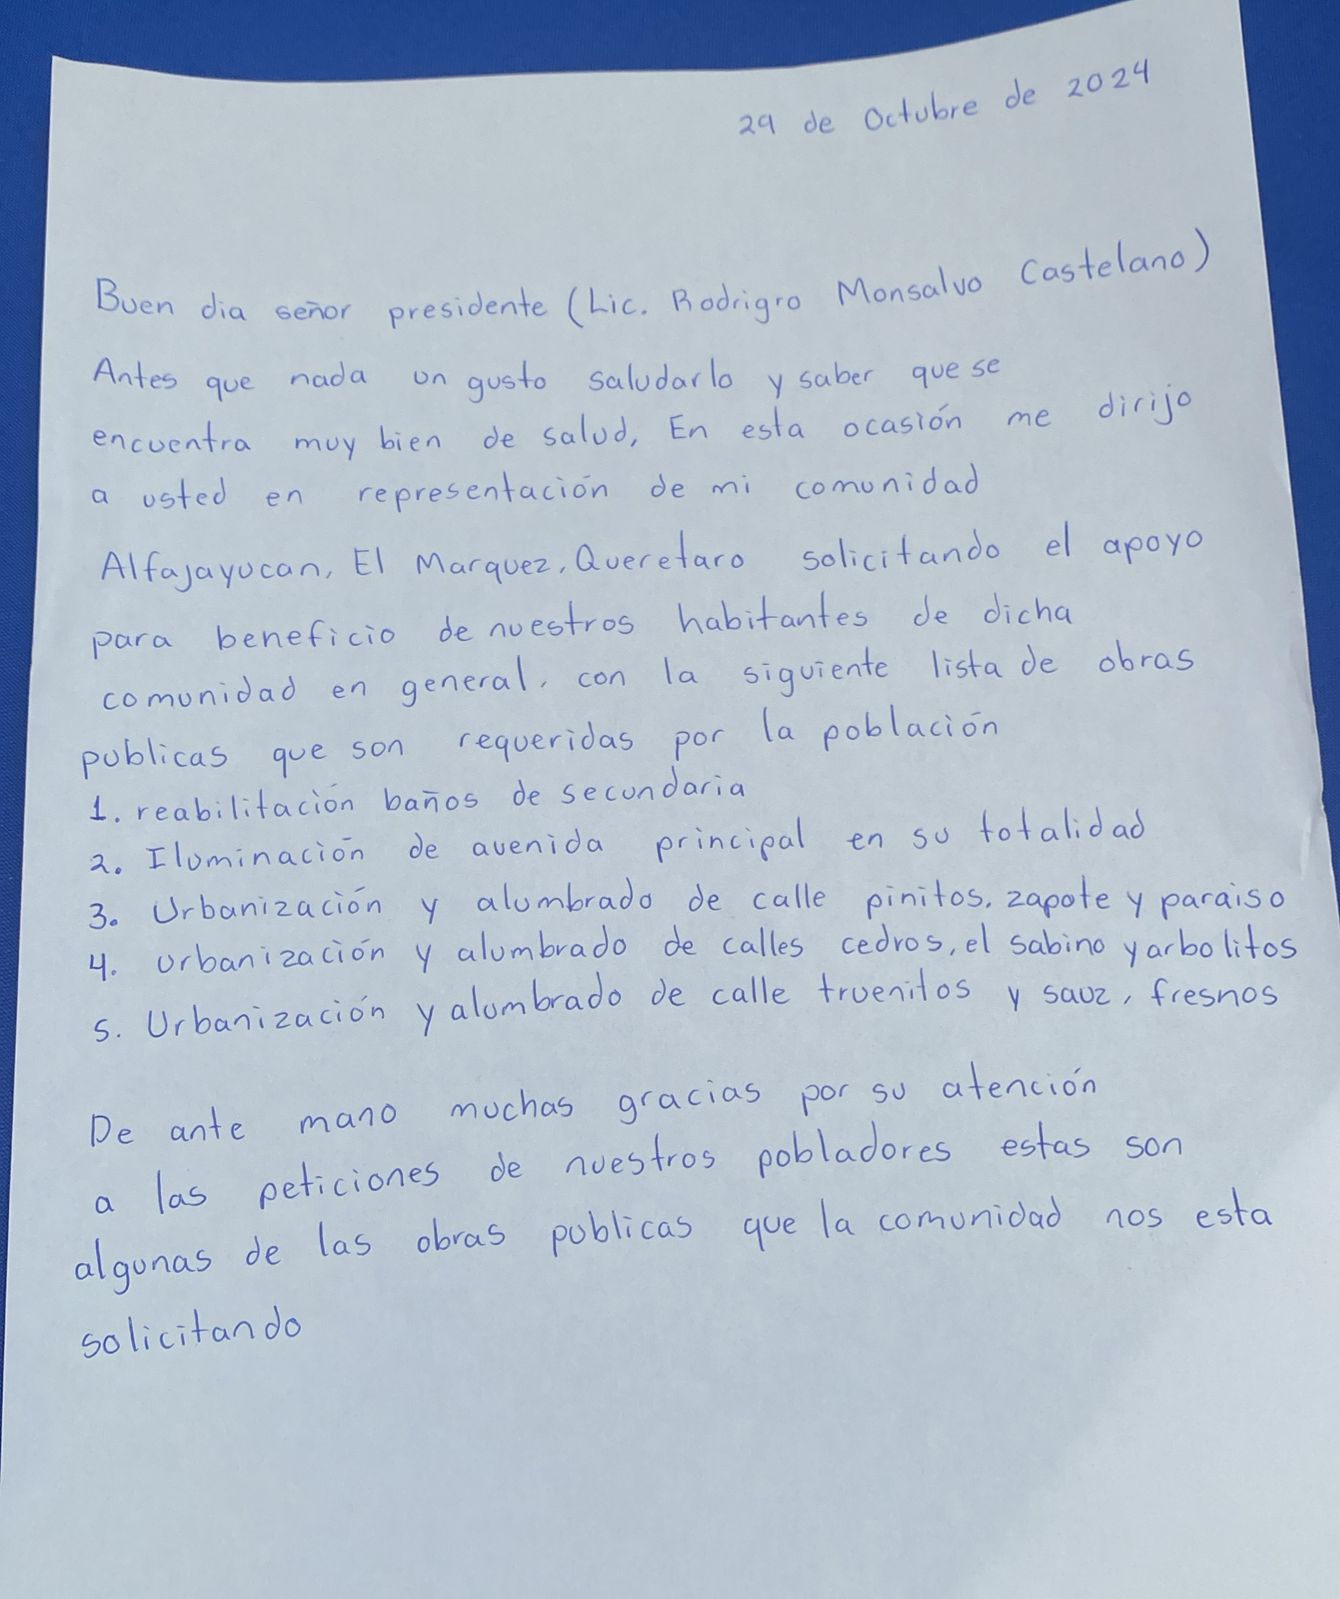 29 de Octubre de 2024
Buen dia señor presidente (Lic. Rodrigro Monsalvo Castelano)
Antes que nada un gusto saludarlo y saber que se
encuentra muy bien de salud, En esta ocasión me dirijo
a usted en representación de mi comunidad
Alfajayucan, El Marquez, Queretaro solicitando el apoyo
para beneficio de nuestros habitantes de dicha
comunidad en general, con la siguiente lista de obras
publicas que son requeridas por la población
1. reabilitación baños de secundaria
2. Iluminación de avenida principal en su totalidad
3. Urbanización y alumbrado de calle pinitos, zapote y paraiso
4. urbanización y alumbrado de calles cedros, el sabino y arbolitos
5. Urbanización y alumbrado de calle truenitos y sauz, fresnos
De ante mano muchas gracias por su atención
a las peticiones de nuestros pobladores estas son
algunas de las obras publicas que la comunidad nos esta
solicitando